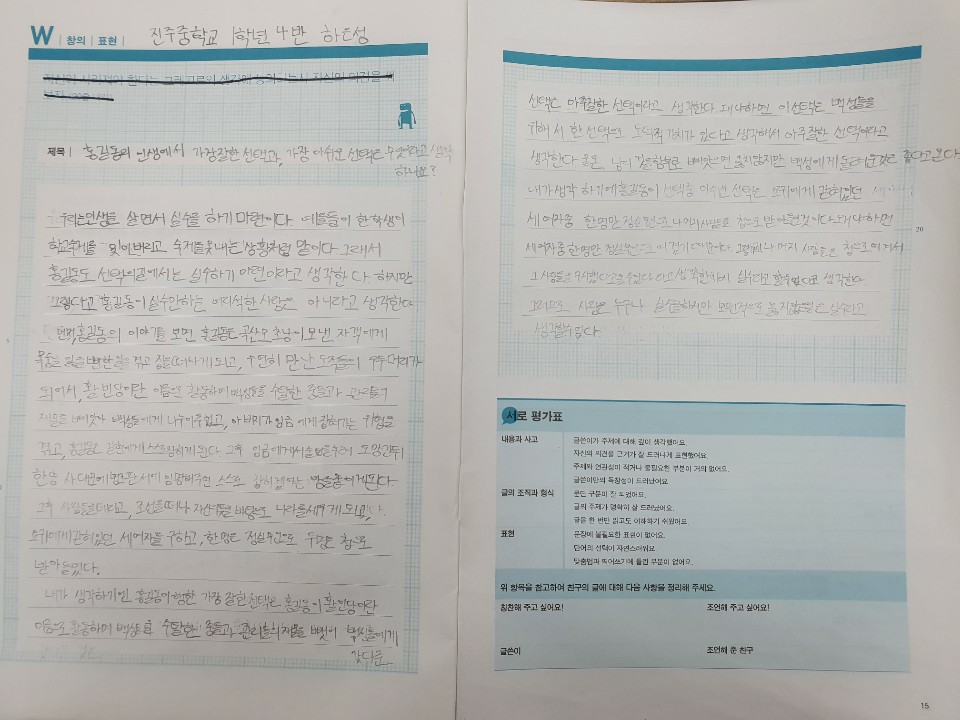 W | 창의 | 표현 |
진주중학교 1학년 4반 하은성
제목 | 홍길동의 인생에서 가장잘한 선택과, 가장 아쉬운 선택은 무엇이라고 생각
하나요?
우리는인생을 살면서 실수를 하기 마련이다. 예를들어 한 학생이
학교숙제를 잊어버리고 숙제를못내는 상황처럼 말이다. 그래서
홍길동도 선택의길에서는 실수하기 마련이라고 생각한다. 하지만
그렇다고 홍길동이 실수만하는 어리석한 사람은 아니라고 생각한다
먼저,홍길동의 이야기를 보면 홍길동은 곡산모 초낭이 보낸 자객에게
목숨을 잃을뻔한 일을 겪고 집을떠나게 되고, 우연히 만난 도적들의 우두머리가
되어서, 활빈당이란 이름으로 활동하여 백성들을 수탈한 중들과 관리들의
재물을 빼앗아 백성들에게 나누어주었고, 아버지가 임금에게 잡혀가는 위험을
겪고, 홍길동은
한양 사대문에
그후 사람들을 데리고, 조선을떠나 나라를세우게 되고,
요괴에게갇혀있던 세여자를 구하고, 한명은 정실부인으로 두명은 첩으로
받아들였다.
내가 생각하기엔 홍길동이행한 가장 잘한선택은 홍길동이 활빈당이란
이름으로 활동하여 백성을 수탈한 중들과 관리들의재물을 뺏어 백성들에게
갖다준
선택은 아주잘한 선택이라고 생각한다 왜냐하면 이선택은 백성들을
위해서 한 선택인 도덕적 가치가 있다고 생각해서 아주잘한 선택이라고
생각한다 물론, 남의 물건을 함부로 빼앗으면 옳지않지만 백성에게 돌려준것은 좋다고본다
내가생각 하기에홍길동이 선택중 아쉬운 선택은 요괴에게 갇혀있던
세여자중 한명만 정실부인으로 나머지사람들을 첩으로 받아들인것이다 왜냐하면
세여자중한명만 정실부인으로 여겼기 때문이다. 그렇게 나머지 사람들은 첩으로 여겨서
그 사람들을 무시했다고볼수있다 라고 생각한다 실수라고할수있다고 생각한다
그러므로 사람은 누구나 실수를하지만 도덕적으로 옳지않은 실수라고
생각할수있다.
20
서로 평가표
내용과 사고
글쓴이가 주제에 대해 깊이 생각했어요.
자신의 의견을 근거가 잘 드러나게 표현했어요.
주제와 연관성이 적거나 불필요한 부분이 거의 없어요.
글쓴이만의 독창성이 드러났어요
글의 조직과 형식
문단 구분이 잘 되었어요.
글의 주제가 명확히 잘 드러났어요.
글을 한 번만 읽고도 이해하기 쉬웠어요.
표현
문장에 불필요한 표현이 없어요.
단어의 선택이 자연스러워요
맞춤법과 띄어쓰기에 틀린 부분이 없어요.
위 항목을 참고하여 친구의 글에 대해 다음 사항을 정리해 주세요.
칭찬해 주고 싶어요! 조언해 주고 싶어요!
글쓴이 조언해 준 친구
15